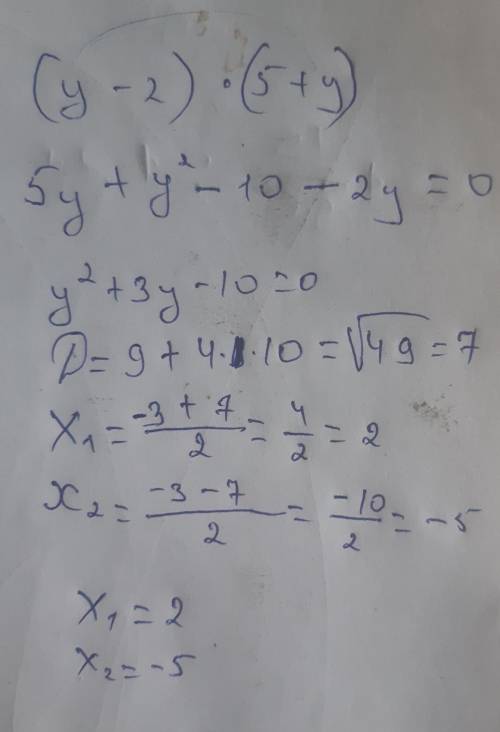 (y - 2) · (5 + y)
5y + y² - 10 - 2y = 0
y² + 3y - 10 = 0
D = 9 + 4·1·10 = √49 = 7
X₁ = (-3 + 7)/2 = 4/2 = 2
x₂ = (-3 - 7)/2 = -10/2 = -5
X₁ = 2
x₂ = -5